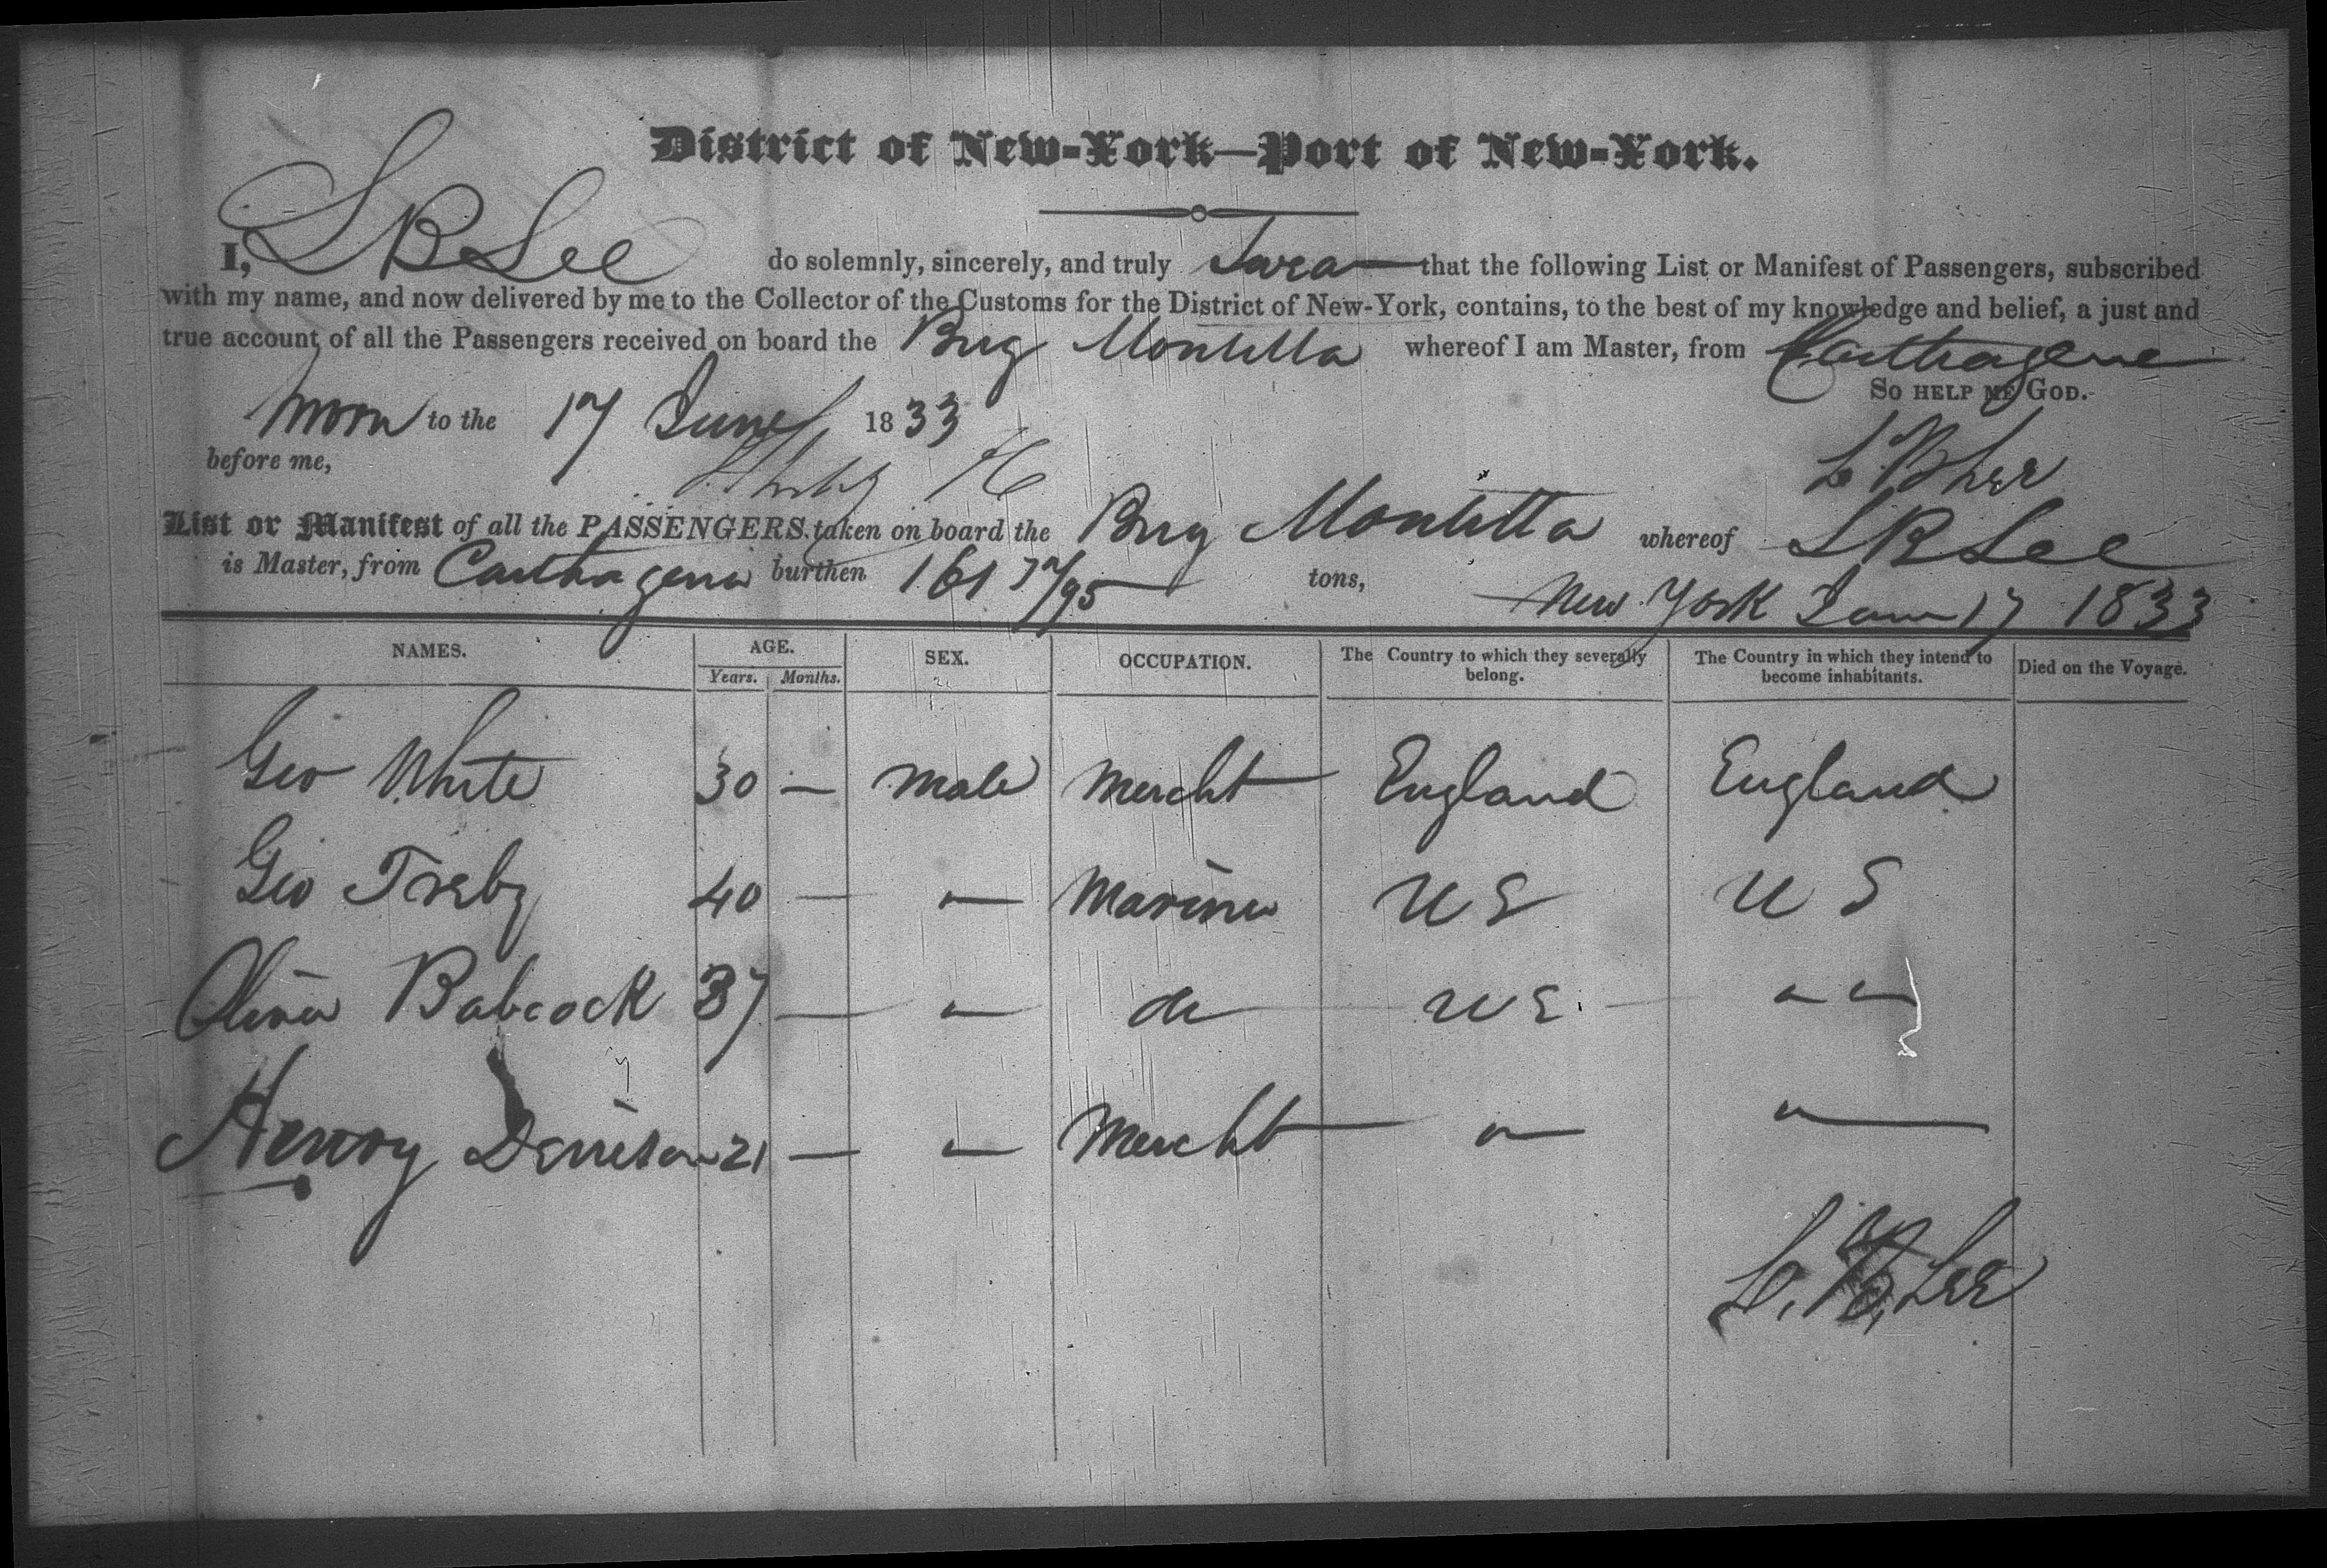 District of New-York—Port of New-York.
I, S B Lee do solemnly, sincerely, and truly Swear that the following List or Manifest of Passengers, subscribed
with my name, and now delivered by me to the Collector of the Customs for the District of New-York, contains, to the best of my knowledge and belief, a just and
true account of all the Passengers received on board the Brig Montilla whereof I am Master, from Carthagena
So help me God.
Sworn to the 17 June 1833
before me,
L. B Lee
List or Manifest of all the PASSENGERS taken on board the Brig Montilla whereof S B Lee
is Master, from Carthagena burthen 161 37/95 tons, New York June 17 1833
NAMES. AGE. SEX. OCCUPATION. The Country to which they severally belong. The Country in which they intend to become inhabitants. Died on the Voyage.
Years. Months.
Geo White 30 — Male Mercht England England
Geo Treby 40 — " Mariner U S U S
Oliver Babcock 37 — " do U S " "
Henry Denison 21 — " Mercht " "
L. B. Lee